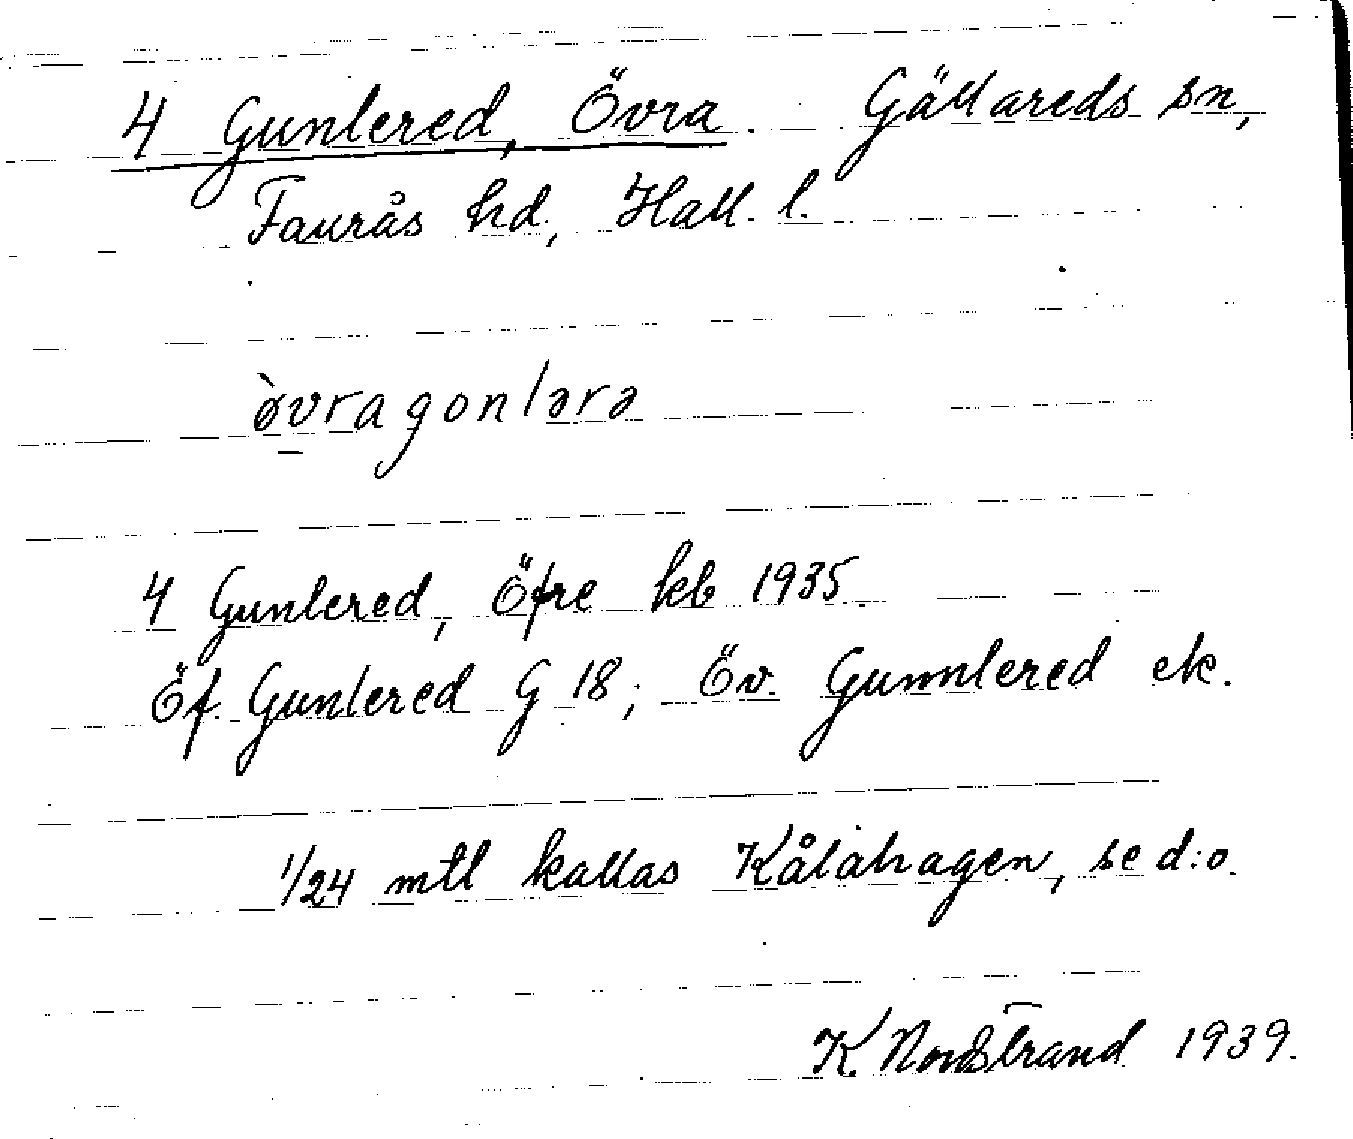 4 Gunlered, Övra. Gällareds sn,
Faurås hd, Hall. l.
ə̀vragonlərə
4 Gunlered, Öfre kb 1935.
Öf. Gunlered G 18; Öv. Gunnlered ek.
1/24 mtl kallas Kålahagen, se d:o.
K Nordstrand 1939.